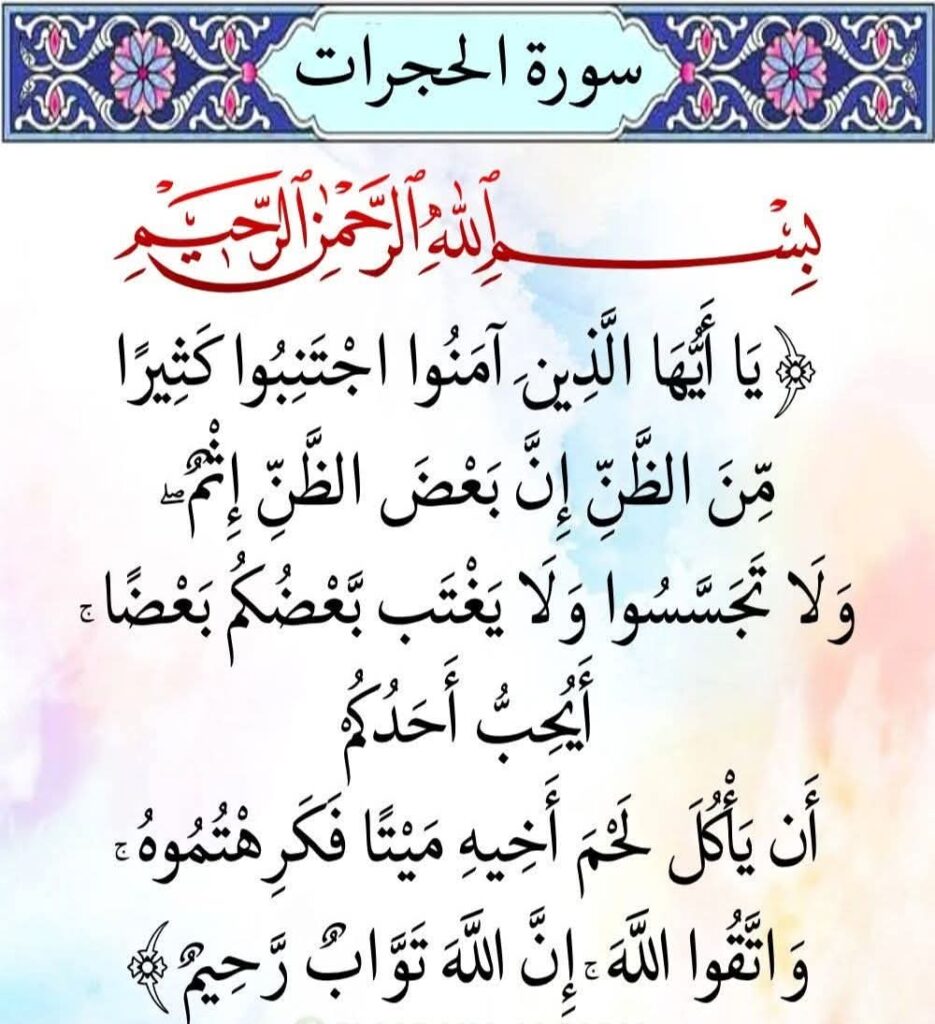 سورة الحجرات
بِسْمِ اللَّهِ الرَّحْمَٰنِ الرَّحِيمِ
﴿ يَا أَيُّهَا الَّذِينَ آمَنُوا اجْتَنِبُوا كَثِيرًا
مِّنَ الظَّنِّ إِنَّ بَعْضَ الظَّنِّ إِثْمٌ ۖ
وَلَا تَجَسَّسُوا وَلَا يَغْتَب بَّعْضُكُم بَعْضًا ۚ
أَيُحِبُّ أَحَدُكُمْ
أَن يَأْكُلَ لَحْمَ أَخِيهِ مَيْتًا فَكَرِهْتُمُوهُ ۚ
وَاتَّقُوا اللَّهَ ۚ إِنَّ اللَّهَ تَوَّابٌ رَّحِيمٌ ﴾